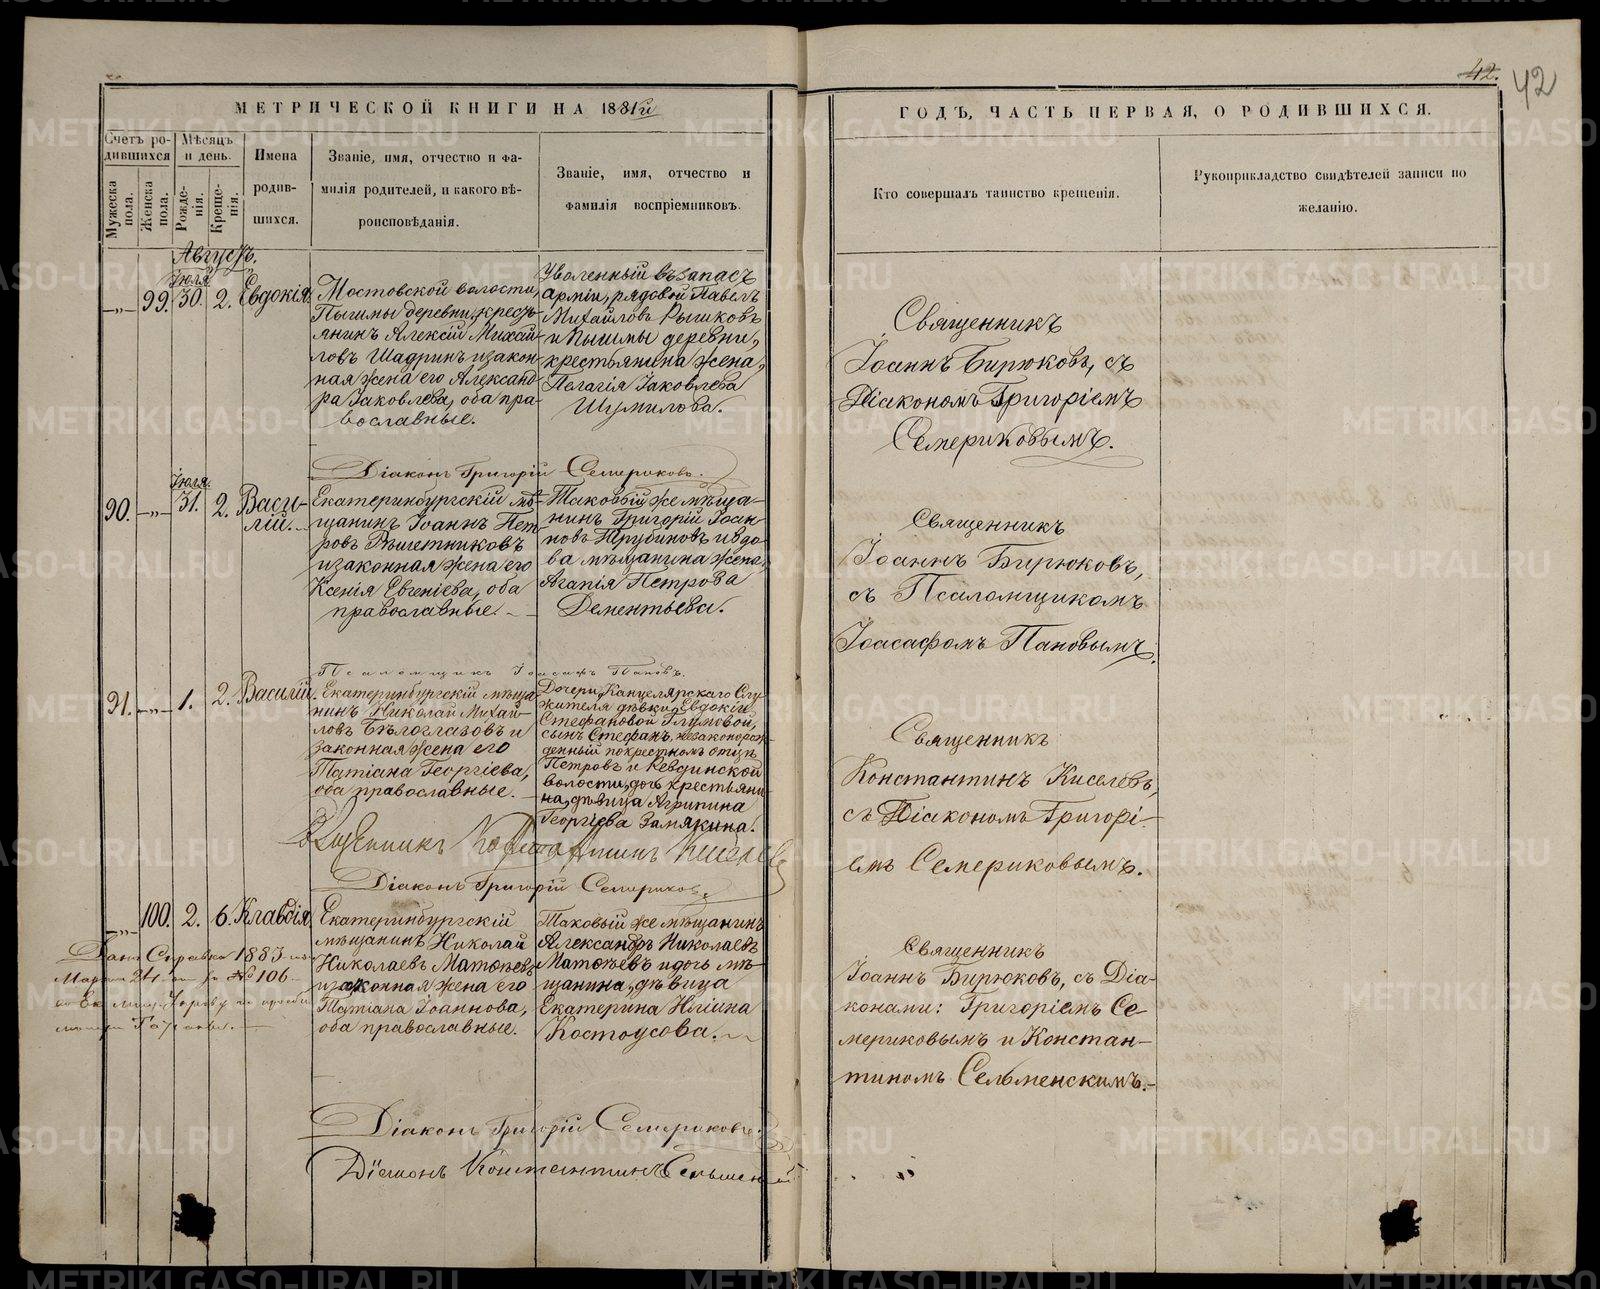 42.
42
МЕТРИЧЕСКОЙ КНИГИ НА 1881й
ГОДЪ, ЧАСТЬ ПЕРВАЯ, О РОДИВШИХСЯ.
Счетъ родившихся
Мужеска пола.
Женска пола.
Мѣсяцъ и день.
Рожденія.
Крещенія.
Имена родившихся.
Званіе, имя, отчество и фамилія родителей, и какого вѣроисповѣданія.
Званіе, имя, отчество и фамилія воспріемниковъ.
Кто совершалъ таинство крещенія.
Рукоприкладство свидѣтелей записи по желанію.
Августъ.
Іюля
99. 30. 2. Евдокія
Мостовской волости,
Пышмы деревни, кресть-
янинъ Алексій Михай-
ловъ Шадринъ и закон-
ная жена его Александ-
ра Іаковлева, оба пра-
вославные.
Уволенный въ запасъ
арміи, рядовой Павелъ
Михайловъ Рышковъ
и Пышмы деревни,
крестьянина жена,
Пелагія Іаковлева
Шумилова.
Священникъ
Іоаннъ Бирюковъ, съ
Діакономъ Григоріемъ
Семериковымъ.
Діаконъ Григорій Семериковъ.
Іюля.
90. 31. 2. Васи-
лій.
Екатеринбургскій мѣ-
щанинъ Іоаннъ Пет-
ровъ Рѣшетниковъ
и законная жена его
Ксенія Евгеніева, оба
православные.
Таковый же мѣща-
нинъ Григорій Іоан-
новъ Трубиновъ и вдо-
ва мѣщанина жена,
Агапія Петрова
Дементьева.
Священникъ
Іоаннъ Бирюковъ,
съ Псаломщикомъ
Іоасафомъ Пановымъ.
Псаломщикъ Іоасафъ Пановъ.
91. 1. 2. Василій.
Екатеринбургскій мѣща-
нинъ Николай Михай-
ловъ Бѣлоглазовъ и
законная жена его
Татіана Георгіева,
оба православные.
Дочери Канцелярскаго Слу-
жителя дѣвки Евдокіи
Стефановой Глумовой,
сынъ Стефанъ, незаконорож-
денный по крестномъ отцѣ
Петровъ и Ревдинской
волости, дочь крестьяни-
на, дѣвица Агрипина
Георгіева Замякина.
Священникъ
Константинъ Киселевъ,
съ Діакономъ Григорі-
емъ Семериковымъ.
Священникъ Константинъ Киселевъ
Діаконъ Григорій Семериковъ.
100. 2. 6. Клавдія
Екатеринбургскій
мѣщанинъ Николай
Николаевъ Матвѣевъ
и законная жена его
Татіана Іоаннова,
оба православные.
Таковый же мѣщанинъ
Александръ Николаевъ
Матвѣевъ и дочь мѣ-
щанина, дѣвица
Екатерина Иліина
Костоусова.
Священникъ
Іоаннъ Бирюковъ, съ Діа-
конами: Григоріемъ Се-
мериковымъ и Констан-
тиномъ Сельменскимъ.
Дана Справка 1883
Марта 24 за № 106
Діаконъ Григорій Семериковъ
Діаконъ Константинъ Сельменскій
METRIKI.GASO-URAL.RU